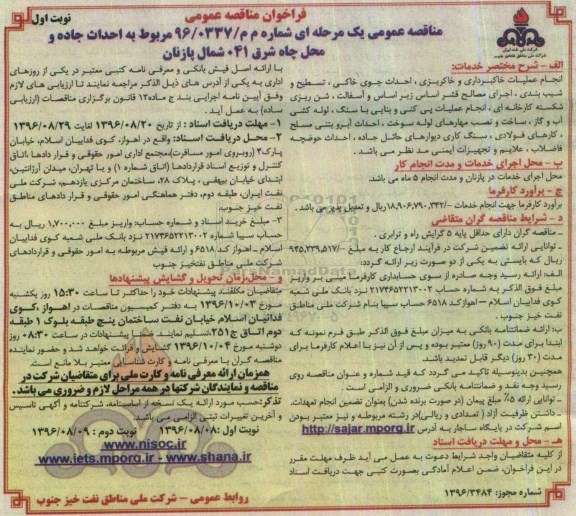 فراخوان مناقصه عمومی
نوبت اول
مناقصه عمومی یک مرحله ای شماره م م/۹۶/۰۳۳۷ مربوط به احداث جاده و
محل چاه شرق ۰۴۱ شمال پازنان
الف – شرح مختصر خدمات:
انجام عملیات خاکبرداری و خاکریزی ، احداث جوی خاکی ، تسطیح و
شیب بندی ، اجرای مصالح قشر اساس زیر اساس و آسفالت ، شن ریزی
شکسته کارخانه ای ، انجام عملیات پی کنی و بنایی با سنگ ، لوله کشی
آب و گاز ، ساخت و نصب مهارهای لوله سوخت ، احداث آبرو بتنی مسلح
، کارهای فولادی ، سنگ کاری دیوارهای حائل جاده ، احداث حوضچه
فاضلاب ، علایم و تجهیزات ایمنی مد نظر می باشد .
ب – محل اجرای خدمات و مدت انجام کار
محل اجرای خدمات در پازنان و مدت انجام ۵ ماه می باشد.
ج – برآورد کارفرما
برآورد کارفرما جهت انجام خدمات ۱۸,۹۰۶,۷۹۰,۳۴۲/- ریال و تعدیل پذیر می باشد .
د – شرایط مناقصه گران متقاضی
. مناقصه گران دارای حداقل پایه ۵ گرایش راه و ترابری .
. توانایی ارائه تضمین شرکت در فرآیند ارجاع کار به مبلغ ۹۴۵,۳۳۹,۵۱۷/-
ریال که بایستی به یکی از دو صورت زیر ارائه گردد:
الف: ارائه رسید وجه صادره از سوی حسابداری کارفرما مبنی بر واریز
مبلغ فوق الذکر به شماره حساب ۲۱۷۴۶۵۲۲۱۳۰۰۲ نزد بانک ملی شعبه
کوی فداییان اسلام – اهوازکد ۶۵۱۸ حساب سیبا بنام شرکت ملی مناطق
نفت خیز جنوب .
ب: ارائه ضمانتنامه بانکی به میزان مبلغ فوق الذکر طبق فرم نمونه که
ابتدا برای مدت (۹۰ روز) معتبر بوده و پس از آن نیز با اعلام کارفرما برای
مدت (۳۰ روز) دیگر قابل تمدید باشد.
همچنین بدینوسیله تاکید می گردد که قید شماره و عنوان مناقصه روی
رسید وجه نقد و ضمانتنامه بانکی ضروری و الزامی است .
. توانایی ارائه ۵٪ مبلغ پیمان (در صورت برنده شدن) بعنوان تضمین انجام تعهدات.
. داشتن ظرفیت آزاد ( تعدادی و ریالی)در رشته مربوطه و نیز معتبر بودن
اسم شرکت در پایگاه ساجار به آدرس http://sajar.mporg.ir
هـ – محل و مهلت دریافت اسناد
از کلیه متقاضیان واجد شرایط دعوت به عمل می آید ظرف مهلت مقرر
در این فراخوان، ضمن اعلام آمادگی بصورت کتبی جهت دریافت اسناد
شماره مجوز: ۱۳۹۶/۳۴۸۴
با ارائه اصل فیش بانکی و معرفی نامه کتبی معتبر در یکی از روزهای
اداری به یکی از آدرس های ذیل الذکر مراجعه نمایند تا ارزیابی های لازم
وفق آیین نامه اجرایی بند ج ماده۱۲ قانون برگزاری مناقصات (ارزیابی
ساده) به عمل آید .
۱- مهلت دریافت اسناد : از تاریخ ۱۳۹۶/۰۸/۲۰ لغایت ۱۳۹۶/۰۸/۲۹
۲- محل دریافت اسناد: واقع در اهواز، کوی فداییان اسلام، خیابان
پارک۳ (روبروی امور مسافرت)،مجتمع اداری امور حقوقی و قرار دادها ،اتاق
کنترل و توزیع اسناد قراردادها (اتاق شماره ۱) و یا تهران، میدان آرژانتین،
ابتدای خیابان بیهقی ، پلاک ۲۸، ساختمان مرکزی یازدهم، شرکت ملی
نفت ایران، طبقه دوم، دفتر هماهنگی امور حقوقی و قرار دادهای مناطق
نفت خیز جنوب.
۳- مبلغ خرید اسناد و شماره حساب: واریز مبلغ ۱,۷۰۰,۰۰۰ ریال به
حساب سیبا شماره ۲۱۷۴۶۵۲۲۱۳۰۰۲ نزد بانک ملی شعبه کوی فداییان
اسلام - اهواز کد ۶۵۱۸ و ارائه فیش مربوطه به امور حقوقی و قراردادهای
شرکت ملی مناطق نفتخیز جنوب
و – محل،زمان تحویل و گشایش پیشنهادها
متقاضیان مکلفند پیشنهادات خود را حداکثر تا ساعت ۱۵:۳۰ روز یکشنبه
مورخ ۱۳۹۶/۱۰/۰۳ به دفتر کمیسیون مناقصات در اهواز ،کوی
فدائیان اسلام خیابان نفت ساختمان پنج طبقه بلوک ۱ طبقه
دوم اتاق ج۲۵۱،تسلیم نمایند. ضمنا پیشنهادات در ساعت ۰۸:۳۰ روز
دوشنبه مورخ ۱۳۹۶/۱۰/۰۴ گشایش و قرائت خواهد شد و حضور نماینده
مناقصه گران با معرفی نامه و کارت شناسایی معتبر بلا مانع است.
همزمان ارائه معرفی نامه و کارت ملی برای متقاضیان شرکت در
مناقصه و نمایندگان شرکتها در همه مراحل لازم و ضروری می باشد.
تذکر:حسب مورد ارائه یک نسخه از اساسنامه، شرکتنامه و آگهی تاسیس
و آخرین تغییرات ثبتی الزامی می باشد.
نوبت اول :۱۳۹۶/۰۸/۰۸ نوبت دوم :۱۳۹۶/۰۸/۰۹
www.nisoc.ir
www.iets.mporg.ir - www.shana.ir
روابط عمومی - شرکت ملی مناطق نفت خیز جنوب